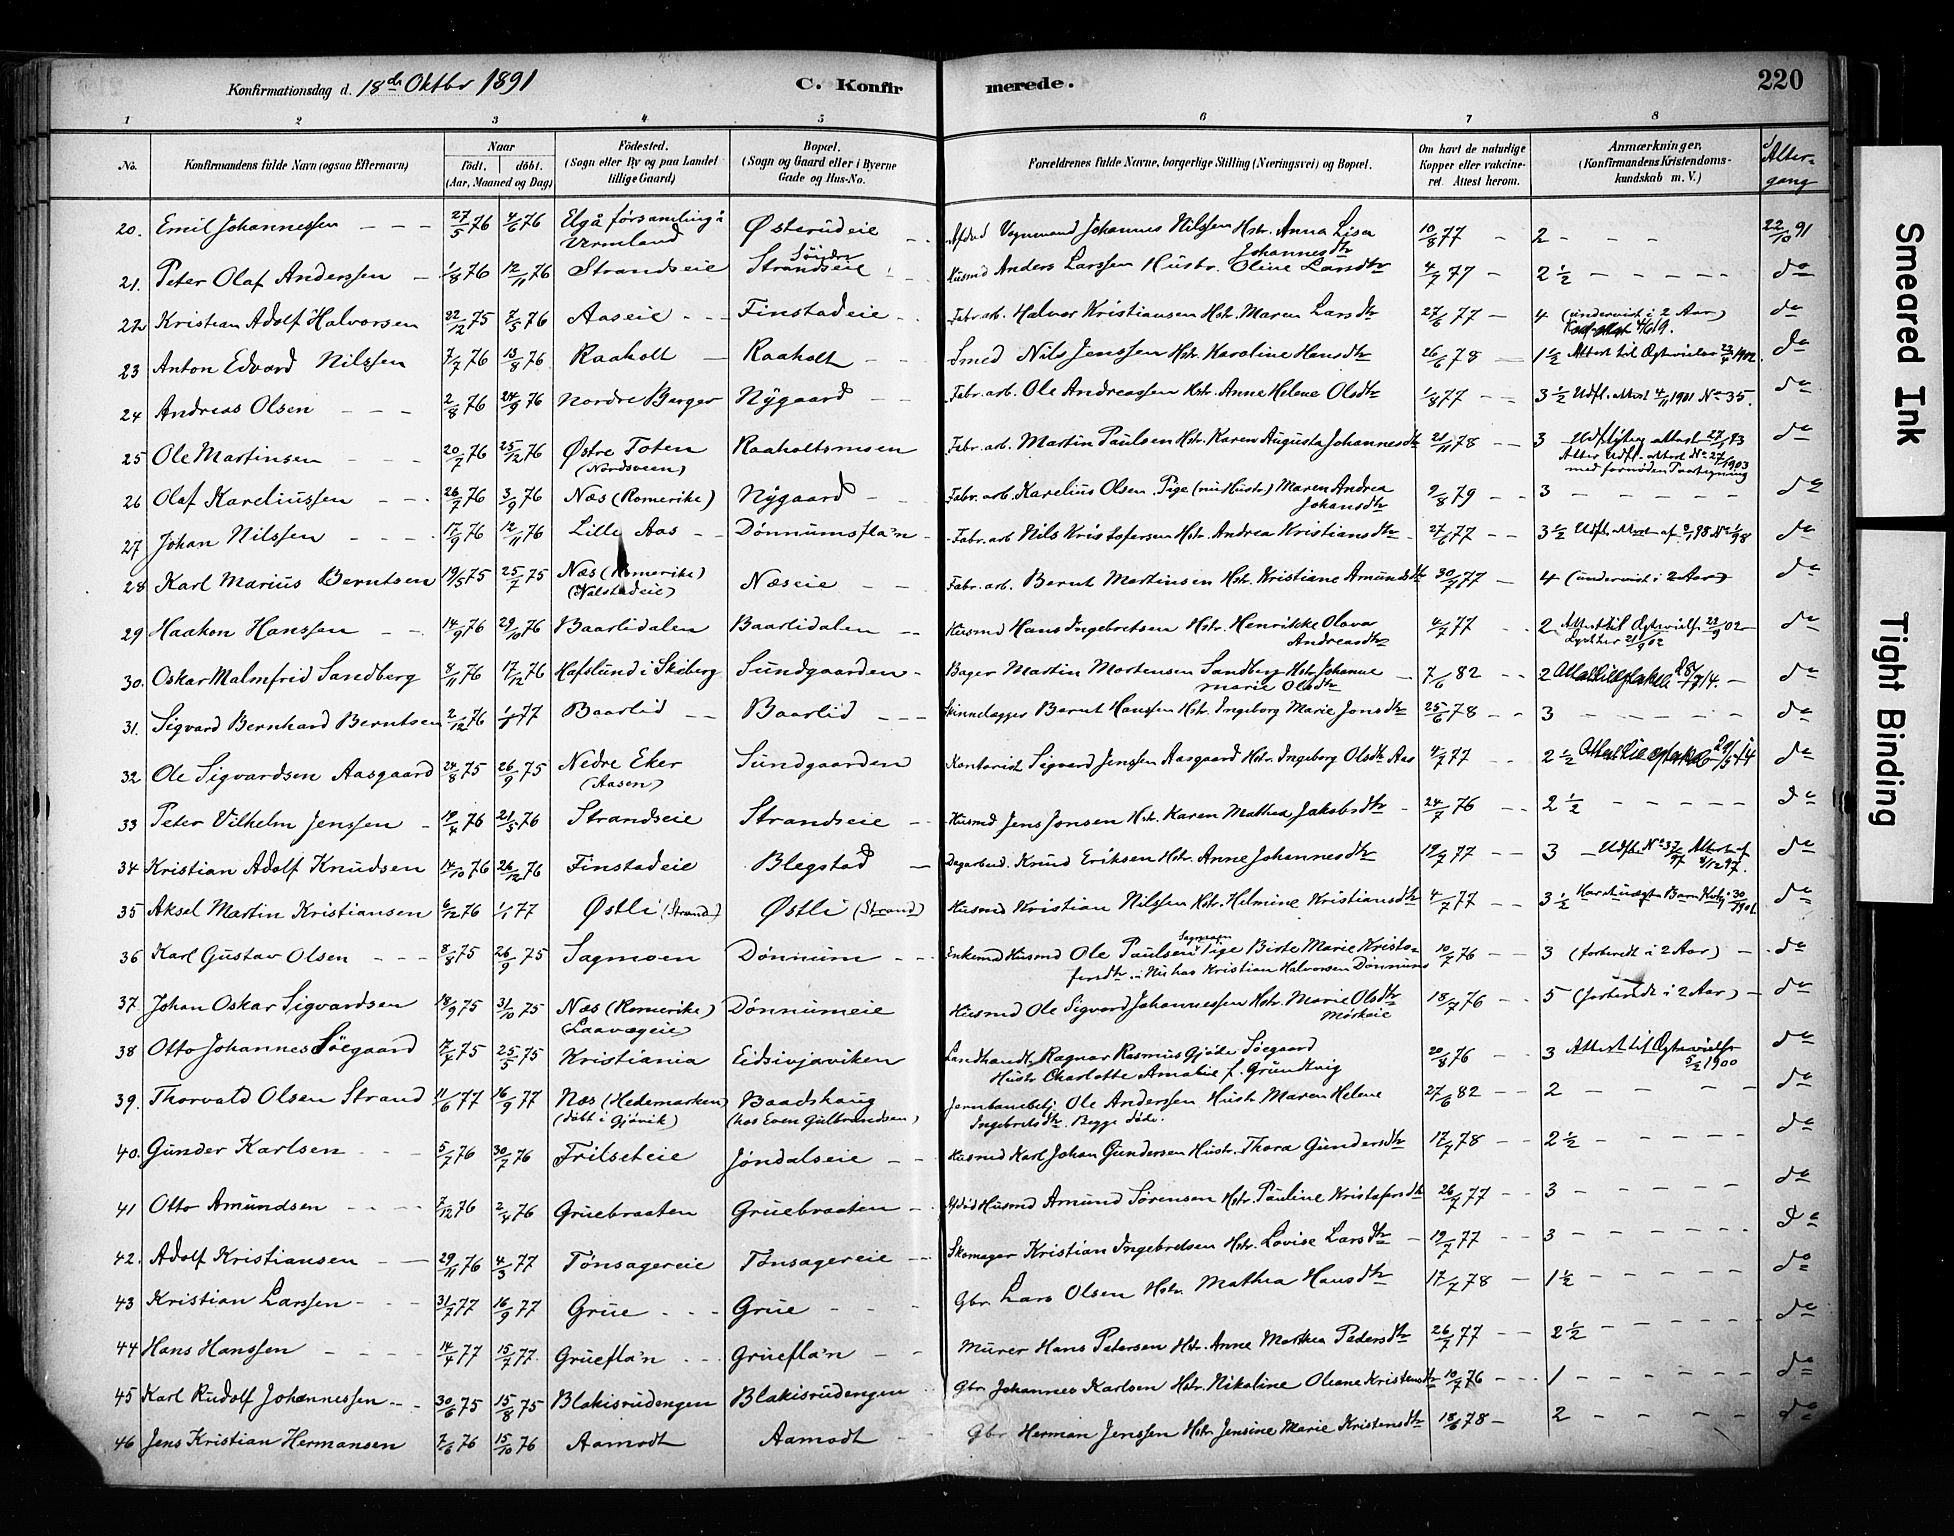 Konfirmationsdag d. 18de Oktbr 1891 C. Konfirmerede. 220
1 2 3 4 5 6 7 8
No. Konfirmandens fulde Navn (ogsaa Efternavn) Naar födt. döbt. (Aar, Maaned og Dag) Födested. (Sogn eller By og paa Landet tillige Gaard) Bopæl. (Sogn og Gaard eller i Byerne Gade og Hus-No. Forældrenes fulde Navne, borgerlige Stilling (Næringsvei) og Bopæl. Om havt de naturlige Kopper eller vakcineret. Attest herom. Anmærkninger, (Konfirmandens Kristendomskundskab m. V.) Altergang
20. Emil Johannessen 27/5 76 4/6 76 Elgå församling å Vermland Østerudeie Afdød Vognmand Johannes Nilssen Hstr. Anna Lisa Johannesdtr 10/8 77 2 22/10 91
21. Peter Olaf Anderssen 1/8 76 12/11 76 Strandseie Söndre Strandseie Husmd Anders Larssen Hustr. Oline Larsdtr 4/7 77 2½ do
22 Kristian Adolf Halvorsen 22/12 75 7/5 76 Aaseie Finstadeie Fabr. arb. Halvor Kristiansen Hstr. Maren Larsdtr 27/6 77 4 (undervist i 2 Aar) do
23 Anton Edvard Nilssen 7/7 76 13/8 76 Raaholt Raaholt Smed Nils Jenssen Hstr. Karoline Hansdtr 26/6 78 1½ Attest til Ægtevielse 23/4 1902. do
24 Andreas Olsen 2/8 76 24/9 76 Nordre Berger Nygaard Fabr. arb. Ole Andreassen Hstr. Anne Helene Olsdtr 1/8 77 3½ Udfl. attest 4/11 1901 No 35. do
25 Ole Martinsen 20/7 76 25/12 76 Østre Toten (Nordsveen) Raaholtsmoen Fabr. arb. Martin Paulsen Hstr. Karen Augusta Johannesdtr 21/11 78 3 Udflytng. attest 27/1 93 Atter Udfl. attest No 27/1903 med fornöden Paategning do
26 Olaf Kareliussen 26/7 76 3/9 76 Næs (Romerike) Nygaard Fabr. arb. Karelius Olsen. Pige (nu Hustr.) Maren Andrea Johansdtr 9/8 79 3 do
27 Johan Nilssen 17/9 76 12/11 76 Lille Aas Dønnumsfla'n Fabr. arb Nils Kristofersen Hstr. Andrea Kristiansdtr 27/6 77 3½ Udfl. Attest af do
28 Karl Marius Berntsen 19/5 75 25/7 75 Næs (Romerike) (Nalstadeie) Næseie Fabr. arb. Bernt Martinsen Hstr. Kristiane Amundsdtr 30/7 77 4 (undervist i 2 Aar) do
29 Haakon Hanssen 14/9 76 29/10 76 Baarlidalen Baarlidalen Husmd Hans Ingebretsen Hstr. Henrikke Olava Andreasdtr 4/7 77 2 Attest til Ægtevielse 23/9 02 do
30. Oskar Malmfrid Sandberg 8/11 76 17/12 76 Hafslund i Skiberg Sundgaarden Bager Martin Mortensen Sandberg Hstr. Johanne Marie Olsdtr 7/6 82 2 do
31. Sigvard Bernhard Berntsen 2/12 76 1/1 77 Baarlid Baarlid Skindlegger Bernt Hanssen Hstr. Ingeborg Marie Jonsdtr 25/6 78 3 do
32 Ole Sigvardsen Aasgaard 24/8 75 26/9 75 Nedre Eker (Aasen) Sundgaarden Kontorist Sigvard Jenssen Aasgaard Hstr. Ingeborg Olsdtr Aas 4/7 77 2½ do
33 Peter Vilhelm Jenssen 19/4 76 21/5 76 Strandseie Strandseie Husmd Jens Jonsen Hstr. Karen Mathea Jakobsdtr 24/7 76 2½ do
34 Kristian Adolf Knudsen 14/10 76 26/12 76 Finstadeie Blegstad Dagarbeid. Knud Eriksen Hstr. Anne Johannesdtr 19/7 77 3 Udfl. No 37/97 Attest af 4/12 97. do
35 Aksel Martin Kristiansen 6/12 76 1/1 77 Østli (Strand) Østli (Strand) Husmd Kristian Nilssen Hstr. Helmine Kristiansdtr 4/7 77 3½ do
36 Karl Gustav Olsen 8/8 75 26/9 75 Sagmoen Dønnum Enkemd Husmd Ole Paulsen Sagmoen Pige Birte Marie Kristofersdtr. Nu hos Kristian Halvorsen Dønnum 10/7 76 3 (forberedt i 2 Aar) do
37. Johan Oskar Sigvardsen 18/9 75 31/10 75 Næs (Romerike) (Laavegeie) Dønnumeie Husmd Ole Sigvard Johannessen Hstr. Marie Olsdtr Mørkeie 18/7 76 5 (forberedt i 2 Aar) do
38 Otto Johannes Söegaard 17/4 75 25/5 75 Kristiania Eidsivjaviken Landhandl. Ragnar Rasmus Gjöde Söegaard Hustr. Charlotte Amalie f. Grundtvig 20/8 76 3 Attest til Ægtevielse 5/2 1900 do
39. Thorvald Olsen Strand 11/6 77 16/9 77 Næs (Hedemarken) (döbt i Gjövik) Baadshaug (hos Even Gulbrandsen) Jernbanebetj. Ole Anderssen Hustr. Maren Helene Ingebretsdtr. Begge döde. 27/6 82 2 do
40. Gunder Karlsen 5/7 76 30/7 76 Frilseteie Jøndalseie Husmd Karl Johan Gundersen Hustr. Thora Gundersdtr 17/7 78 2½ do
41 Otto Amundsen 7/12 76 2/4 76 Gruebraaten Gruebraaten Afdöd Husmd Amund Sörensen Hstr. Pauline Kristofersdtr 26/7 77 3 do
42. Adolf Kristiansen 29/11 76 4/3 77 Tönsagereie Tönsagereie Skomager Kristian Ingebretsen Hstr. Lovise Larsdtr 19/7 77 3 do
43 Kristian Larssen 31/7 77 16/9 77 Grue Grue Gbr. Lars Olsen Hstr. Mathea Hansdtr 17/7 78 1½ do
44 Hans Hanssen 14/4 77 15/7 77 Gruefla'n Gruefla'n Murer Hans Petersen Hstr. Anne Marthea Pedersdtr 26/7 77 2½ do
45 Karl Rudolf Johannessen 30/6 75 15/8 75 Blakisrudengen Blakisrudengen Gbr. Johannes Karlsen Hstr. Nikoline Oleane Kristensdtr 10/7 76 1 do
46 Jens Kristian Hermansen 7/6 76 15/10 76 Aamodt Aamodt Gbr. Herman Jenssen Hstr. Jensine Marie Kristensdtr 18/6 78 2 do
Smeared Ink
Tight Binding